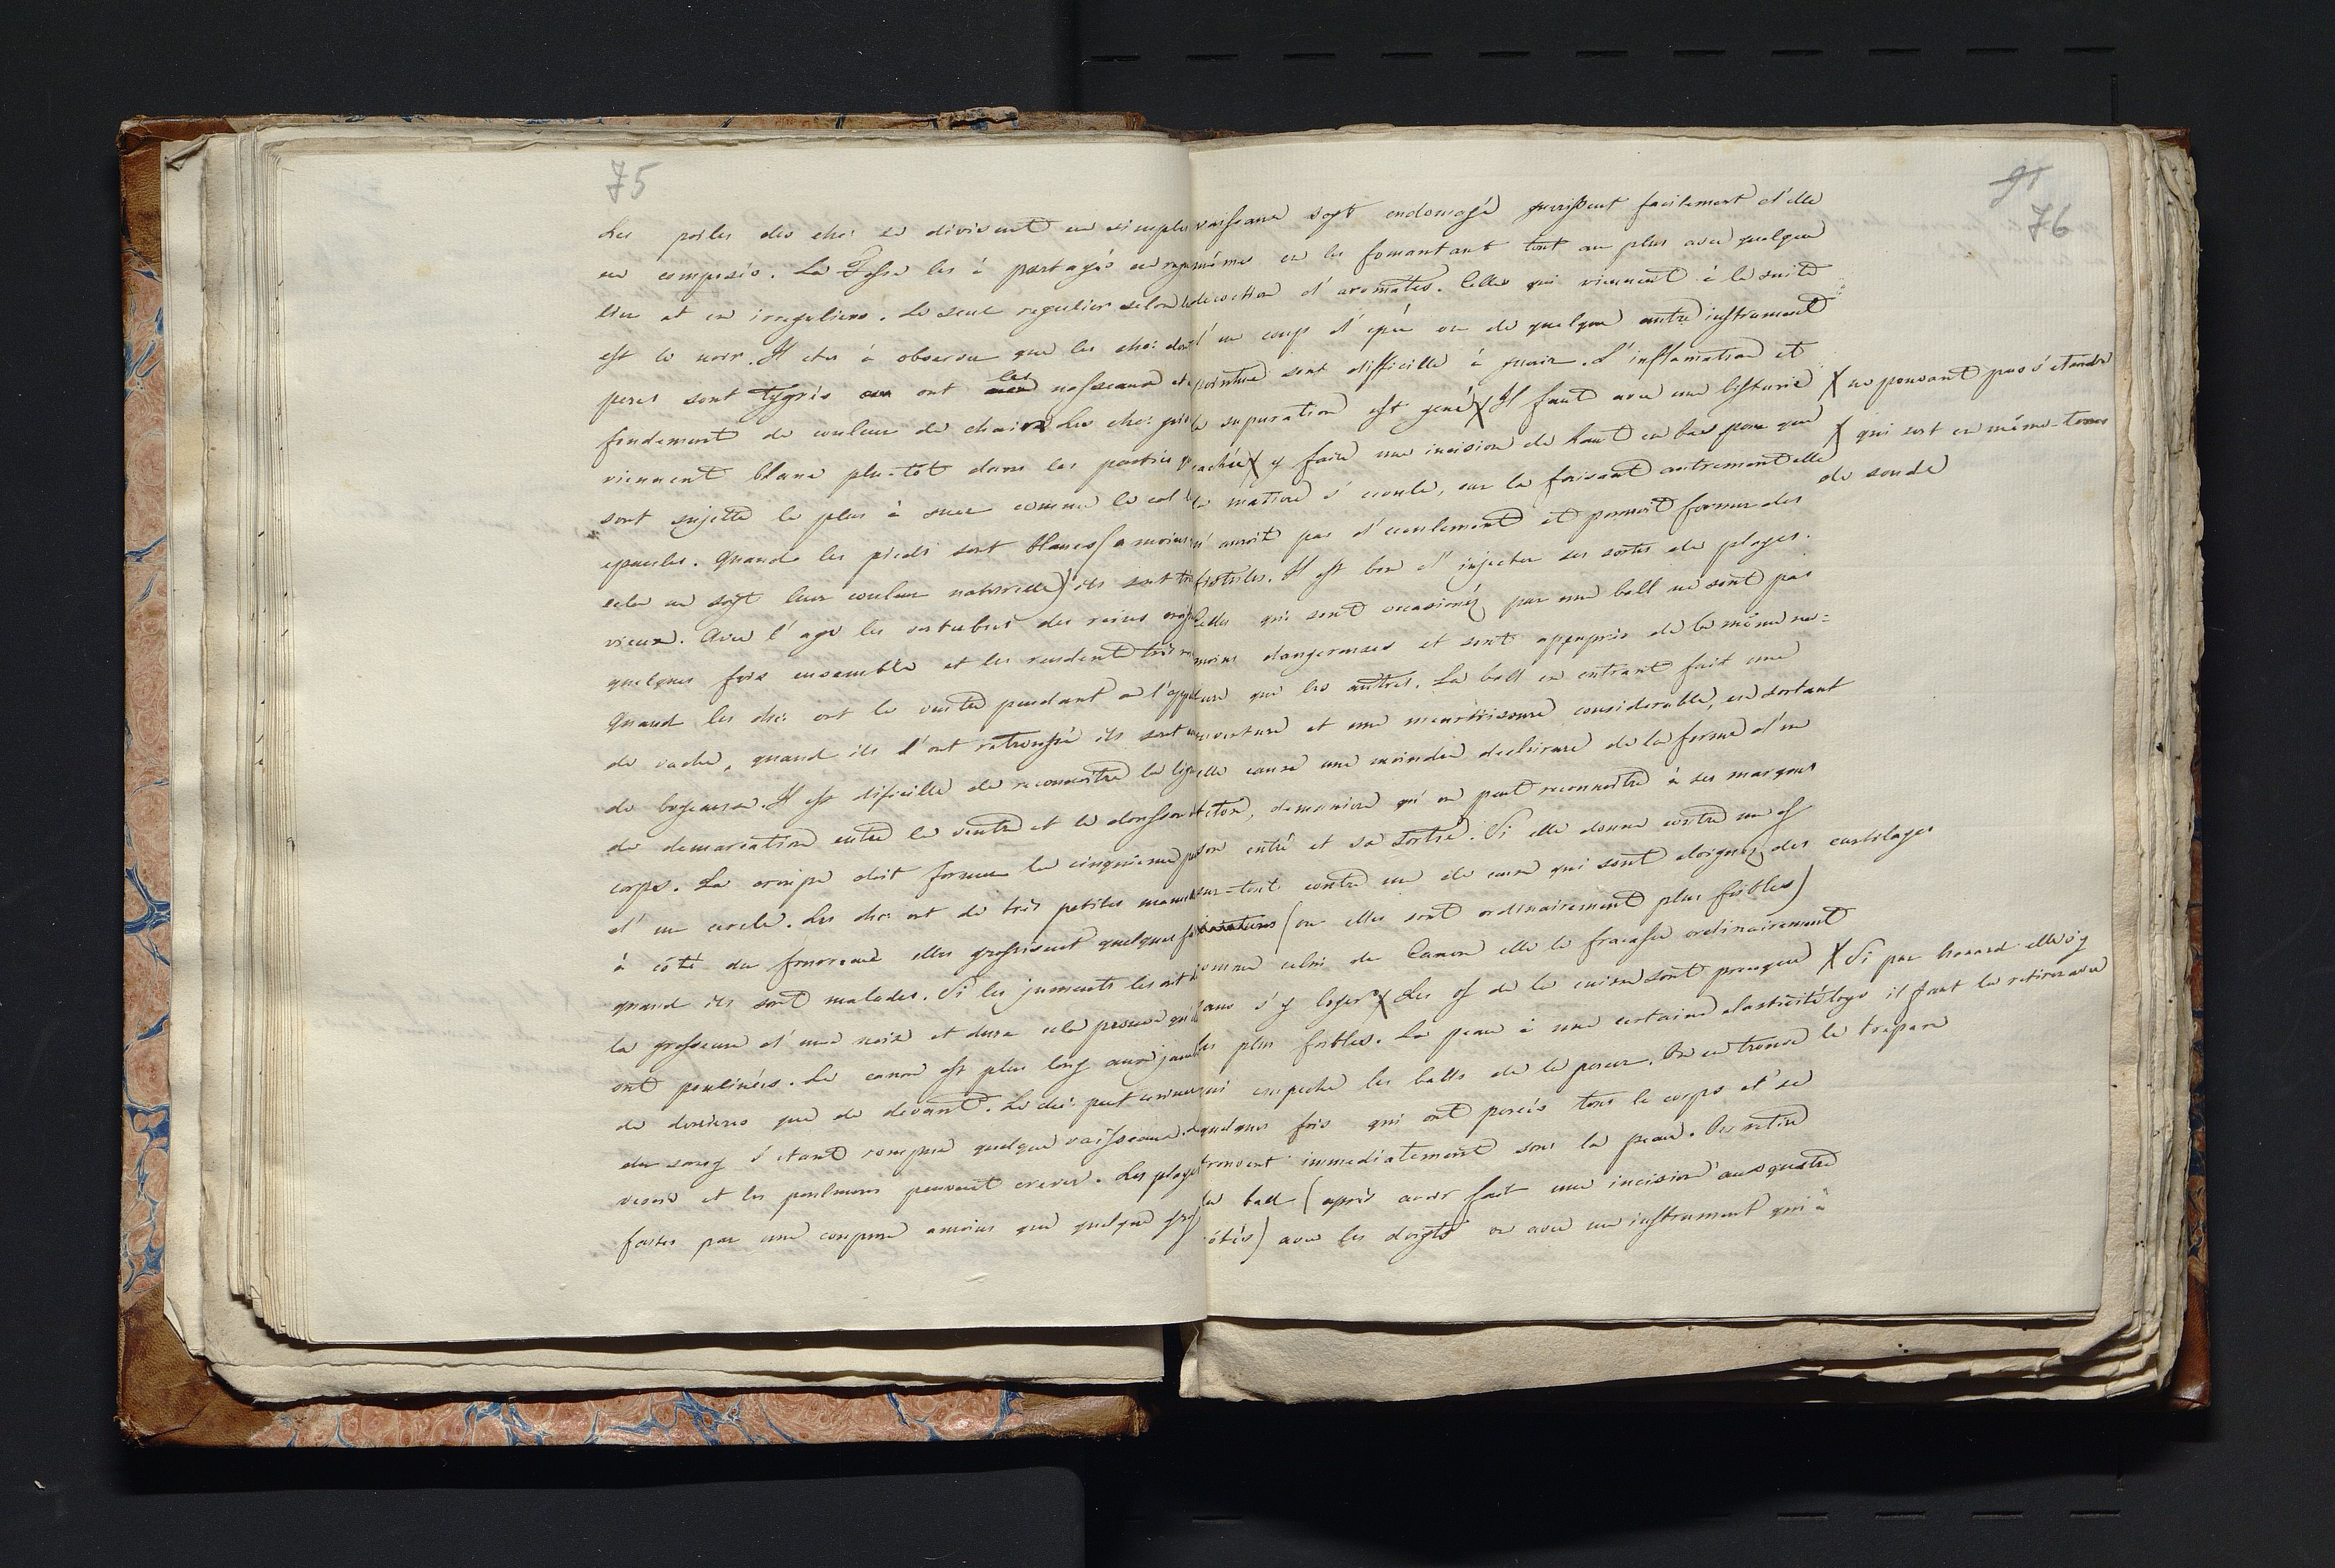 75
Les poiles des che: se divisent en simples
en composés. La Fosse les à partagés en regu
lier et en irreguliers. Le seul regulier selon l
est le noir. Il etes à observer que les che: dont
peres sont tygrés ont les nasseaux et
fondement de couleur de chair. Les che: gri
viennent blanc plu-tot dans les parties q
sont sujette le plus à suer comme le col l
epaules. Quand les pieds sont blancs (a moins
cela ne soyt leur couleur naturelle) ils sont trè
vieux. Avec l'age les vertubres des reins
quelques fois ensemble et les rendent très
Quand les che: ont le ventre pendant on l'appel
de vache, quand ils l'ont retroussé ils sont
de boyeaux. Il est dificille de reconnoitre la lign
de demarcation entre le ventre et le
corps. La croupe doit former la cinquieme
d'un cercle. Les che: ont de très petites mamel
à côté du fourreau elles grossissent quelques fo
quand ils sont malades. Si les juments les ont d
la grosseur d'une noix et dure cela prouve qu'el
ont poulinées. Le canon est plus long aux jamb
de derriere que de devant. Le che: peut uriner
du sang s'etant rompu quelque vaisseaux.
vessie et les poulmons peuvent crever. Les playes
faites par une coupure amoins que quelque gros
91
76
vaisseaux soyt endomagé guerissent facilement d'elle
mêmes en les fomantant tout au plus avec quelque
decoction d'aromates. Celles qui viennent à la suite
d'un coup d'epée ou de quelque autre instrument
pointue sont difficille à guerir. L'inflamation et
la supuration est gené X Il faut avec une bisturie X ne pouvant pas s'etendre
cachée X y faire une incision de haut en bas pour que X qui sert en même-tems
la matiere s'ecoule, car le faisant autrement elle de sonde
n'auroit pas d'ecoulement et pourroit former des
fistules. Il est bon d'injecter ses sortes de playes.
Celles qui sont occasionés par une ball ne sont pas
moins dangereuses et sont appeupris de la même na=
ture que les autres. La ball en entrant fait une
ouverture et une meurtrissure considerable, en sortant
elle cause une moindre dechirure de la forme d'un
, demaniere qu'on peut reconnoitre à ses marques
son entré et sa sortie. Si elle donne contre un os
sur-tout contre un de ceux qui sont eloignés des cartilages
(ou elles sont ordinairement plus foibles)
comme celui de Canon elle le fracasse ordinairement
sans s'y loger X Les os de la cuisse sont presque X Si par hazard elle s'y
les plus foibles. La peau à une certaine elasticité loge il faut la retirer avec
qui empeche les balls de la percer. On en trouve le trepan
quelques fois qui ont percés tous le corps et se
trouvent immediatement sous la peau. On retire
la ball (après avoir fait une incision aux quatre
côtés) avec les doigts ou avec un instrument qui a